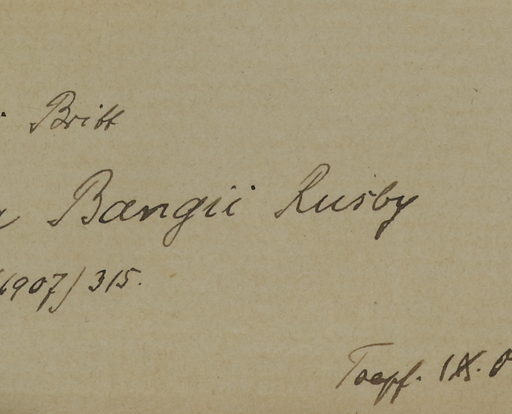 Britt
Bangii Rusby
1907) 315.
Toepf. IX. 0